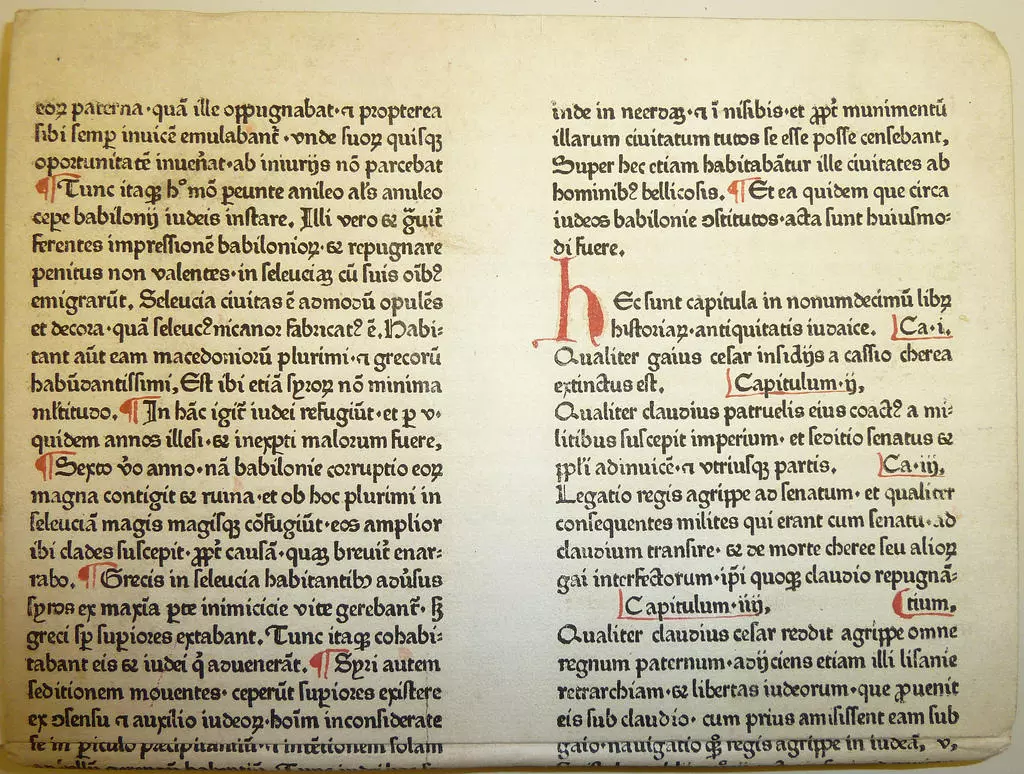 eoꝝ paterna·quā ille oꝓpugnabat·⁊ ꝓpterea
sibi semꝑ inuicē emulabant̄·vnde suoꝝ quisqꝫ
oportunitatē inuen̄at·ab iniurijs nō parcebat
¶Tunc itaqꝫ h° mō ꝑeunte anileo al's anuleo
cepe babilonij iudeis instare. Illi vero ⁊ g̃uit̄
ferentes impressionē babilonioꝝ·⁊ repugnare
penitus non valentes·in seleuciaꝫ cū suis oībꝰ
emigrarūt. Seleucia ciuitas ē admodū opulēs
et decora·quā seleucꝰ nicanor fabricatꝰ ē. Habi⸗
tant aūt eam macedoniorū plurimi·⁊ grecorū
habūdantissimi, Est ibi etiā syroꝝ nō minima
ml̄titudo. ¶In hāc igit̄ iudei refugiūt·et ꝑ v·
quidem annos illesi·⁊ inexꝑti malorum fuere,
¶Sexto v̄o anno·nā babilonie corruptio eoꝝ
magna contigit ⁊ ruina·et ob hoc plurimi in
seleuciā magis magisqꝫ cōfugiūt·eos amplior
ibi clades suscepit·ꝓpt̄ causā·quaꝫ breuit̄ enar⸗
rabo. ¶Grecis in seleucia habitantibꝰ adūsus
syros ex maxīa ꝑte inimicicie vite gerebant̄·sꝫ
greci sꝑ suꝑiores extabant. Tunc itaqꝫ cohabi⸗
tabant eis ⁊ iudei q̄ aduenerāt. ¶Syri autem
seditionem mouentes·ceperūt suꝑiores existere
ex ɔsensu ⁊ auxilio iudeoꝝ·hoīm inconsiderate
se in ꝑiculo p̄cipitantiū·⁊ intētionem solam
inde in neerdaꝫ·⁊ ī nisibis·et ꝓpt̄ munimentū
illarum ciuitatum tutos se esse posse censebant,
Super hec etiam habitabātur ille ciuitates ab
hominibꝰ bellicosis. ¶Et ea quidem que circa
iudeos babilonie ɔstitutos·acta sunt huiusmo⸗
di fuere.
hEc sunt capitula in nonumdecimū libꝝ
historiaꝝ·antiquitatis iudaice. Ca·i.
Qualiter gaius cesar insidijs a cassio cherea
extinctus est. Capitulum·ij,
Qualiter claudius patruelis eius coactꝰ a mi⸗
litibus suscepit imperium· et seditio senatus ⁊
ppl̄i adinuicē·⁊ vtriusqꝫ partis. Ca·iij,
Legatio regis agrippe ad senatum· et qualiter
consequentes milites qui erant cum senatu·ad
claudium transire·⁊ de morte cheree seu alioꝝ
gai interfectorum·ip̄i quoqꝫ claudio repugnā⸗
Capitulum·iiij, tium,
Qualiter claudius cesar reddit agrippe omne
regnum paternum·adijciens etiam illi lisanie
retrarchiam·⁊ libertas iudeorum·que ꝓuenit
eis sub claudio· cum prius amisissent eam sub
gaio·nauigatio qꝫ regis agrippe in iudeā, v,